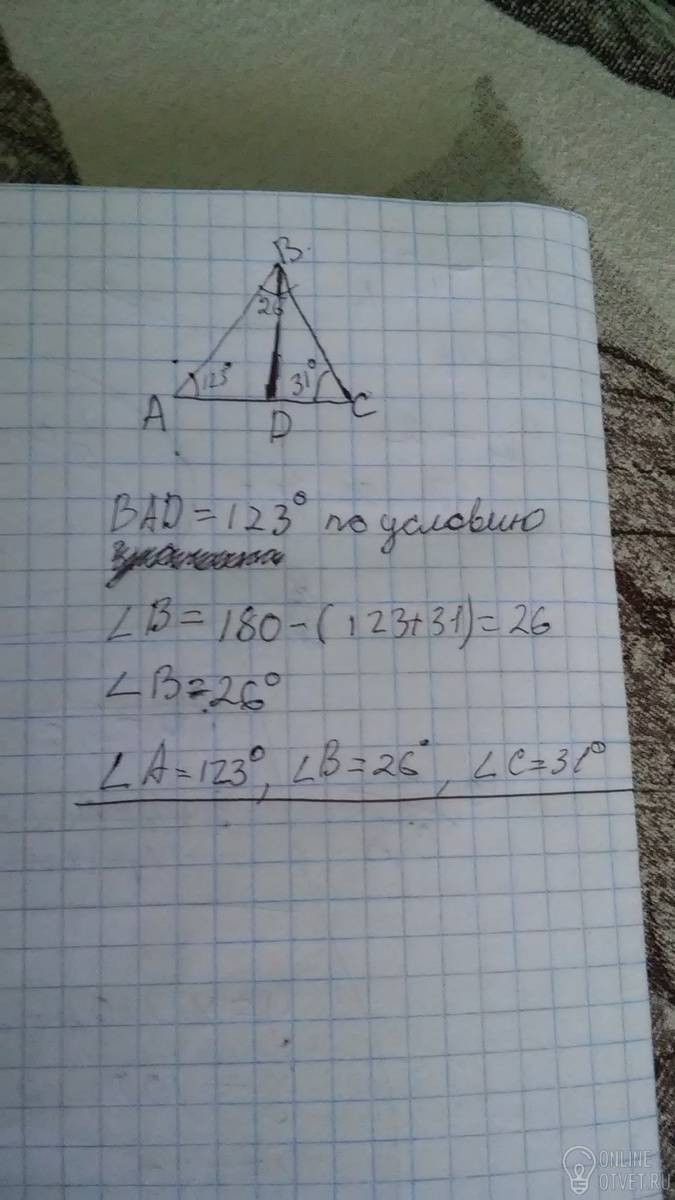 B
26
123° 31°
A D C
BAD = 123° по условию
∠B = 180 - (123+31) = 26
∠B = 26°
∠A = 123°, ∠B = 26°, ∠C = 31°
ONLINE
OTVET.RU